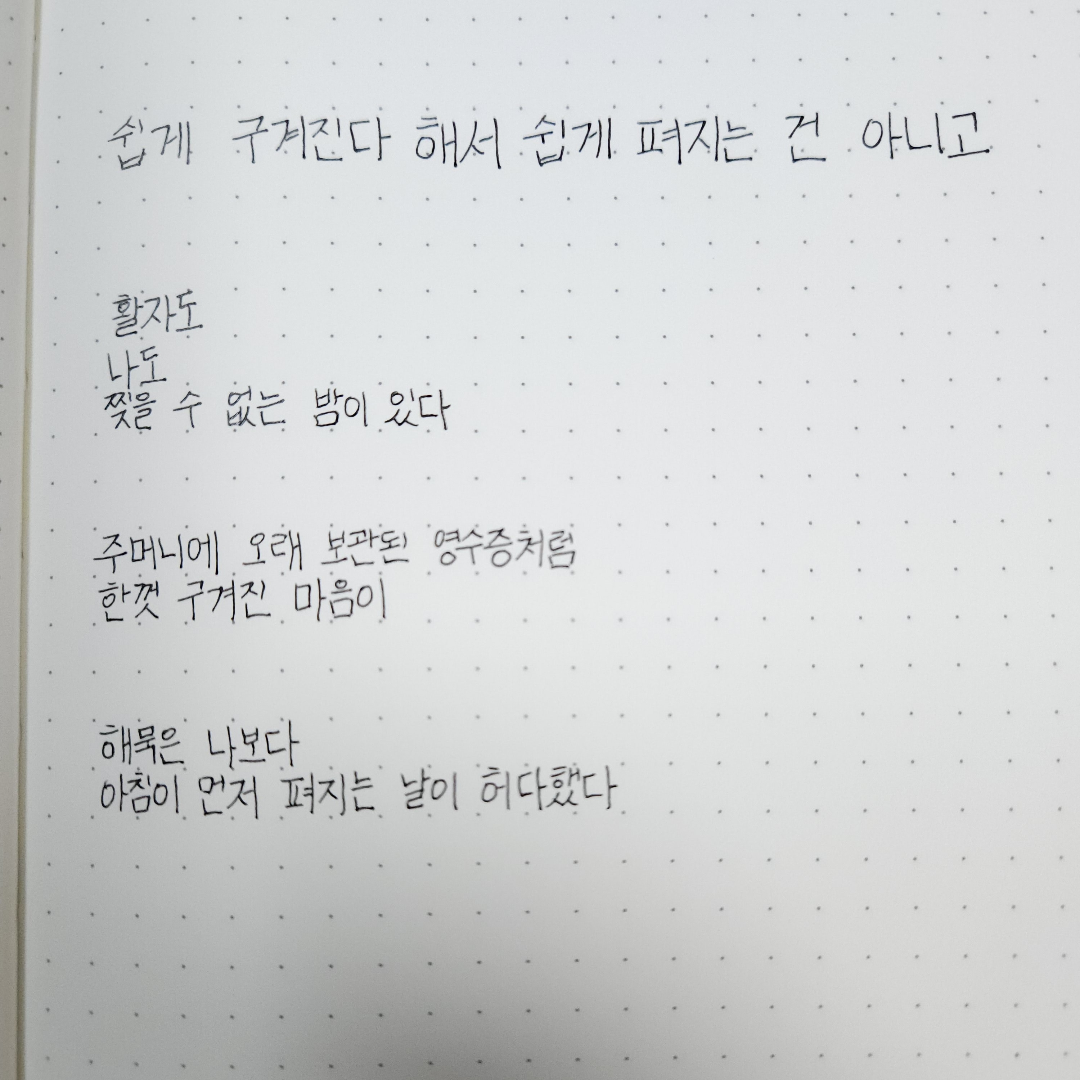 쉽게 구겨진다 해서 쉽게 펴지는 건 아니고
활자도
나도
찢을 수 없는 밤이 있다
주머니에 오래 보관된 영수증처럼
한껏 구겨진 마음이
해묵은 나보다
아침이 먼저 펴지는 날이 허다했다